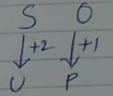 S O
↓+2 ↓+1
U P